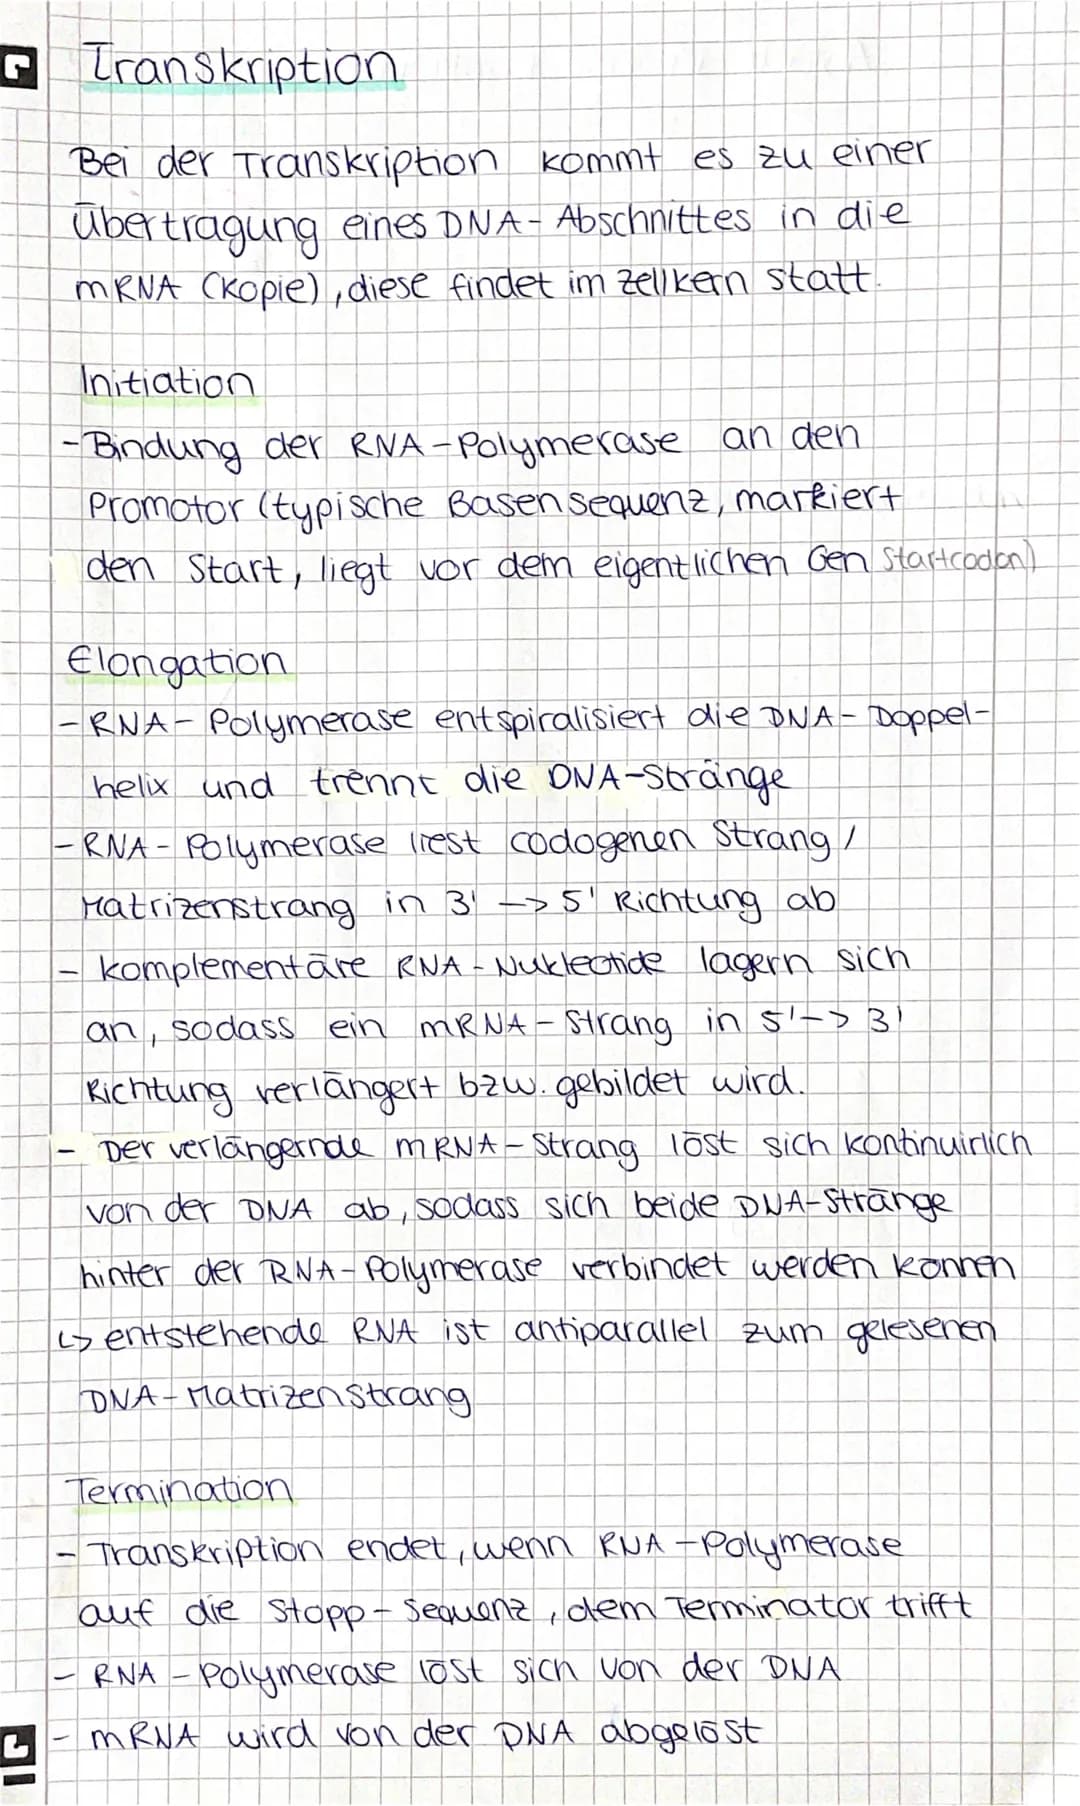 Transkription
Bei der Transkription kommt es zu einer
Übertragung eines DNA-Abschnittes in die
mRNA (Kopie), diese findet im Zellkern statt.
Initiation
-Bindung der RNA-Polymerase an den
Promotor (typische Basensequenz, markiert
den Start, liegt vor dem eigentlichen Gen Startcodon)
Elongation
-RNA-Polymerase entspiralisiert die DNA-Doppel-
helix und trennt die DNA-Stränge
-RNA-Polymerase liest codogenen Strang /
Matrizenstrang in 3' -> 5' Richtung ab
- komplementäre RNA-Nukleotide lagern sich
an, sodass ein mRNA-Strang in 5'-> 3'
Richtung verlängert bzw. gebildet wird.
- Der verlängernde mRNA-Strang löst sich kontinuirlich
von der DNA ab, sodass sich beide DNA-Stränge
hinter der RNA-Polymerase verbindet werden können
↳ entstehende RNA ist antiparallel zum gelesenen
DNA-Matrizenstrang
Termination
- Transkription endet, wenn RNA-Polymerase
auf die Stopp-Sequenz, dem Terminator trifft
- RNA-Polymerase löst sich von der DNA
- mRNA wird von der DNA abgelöst